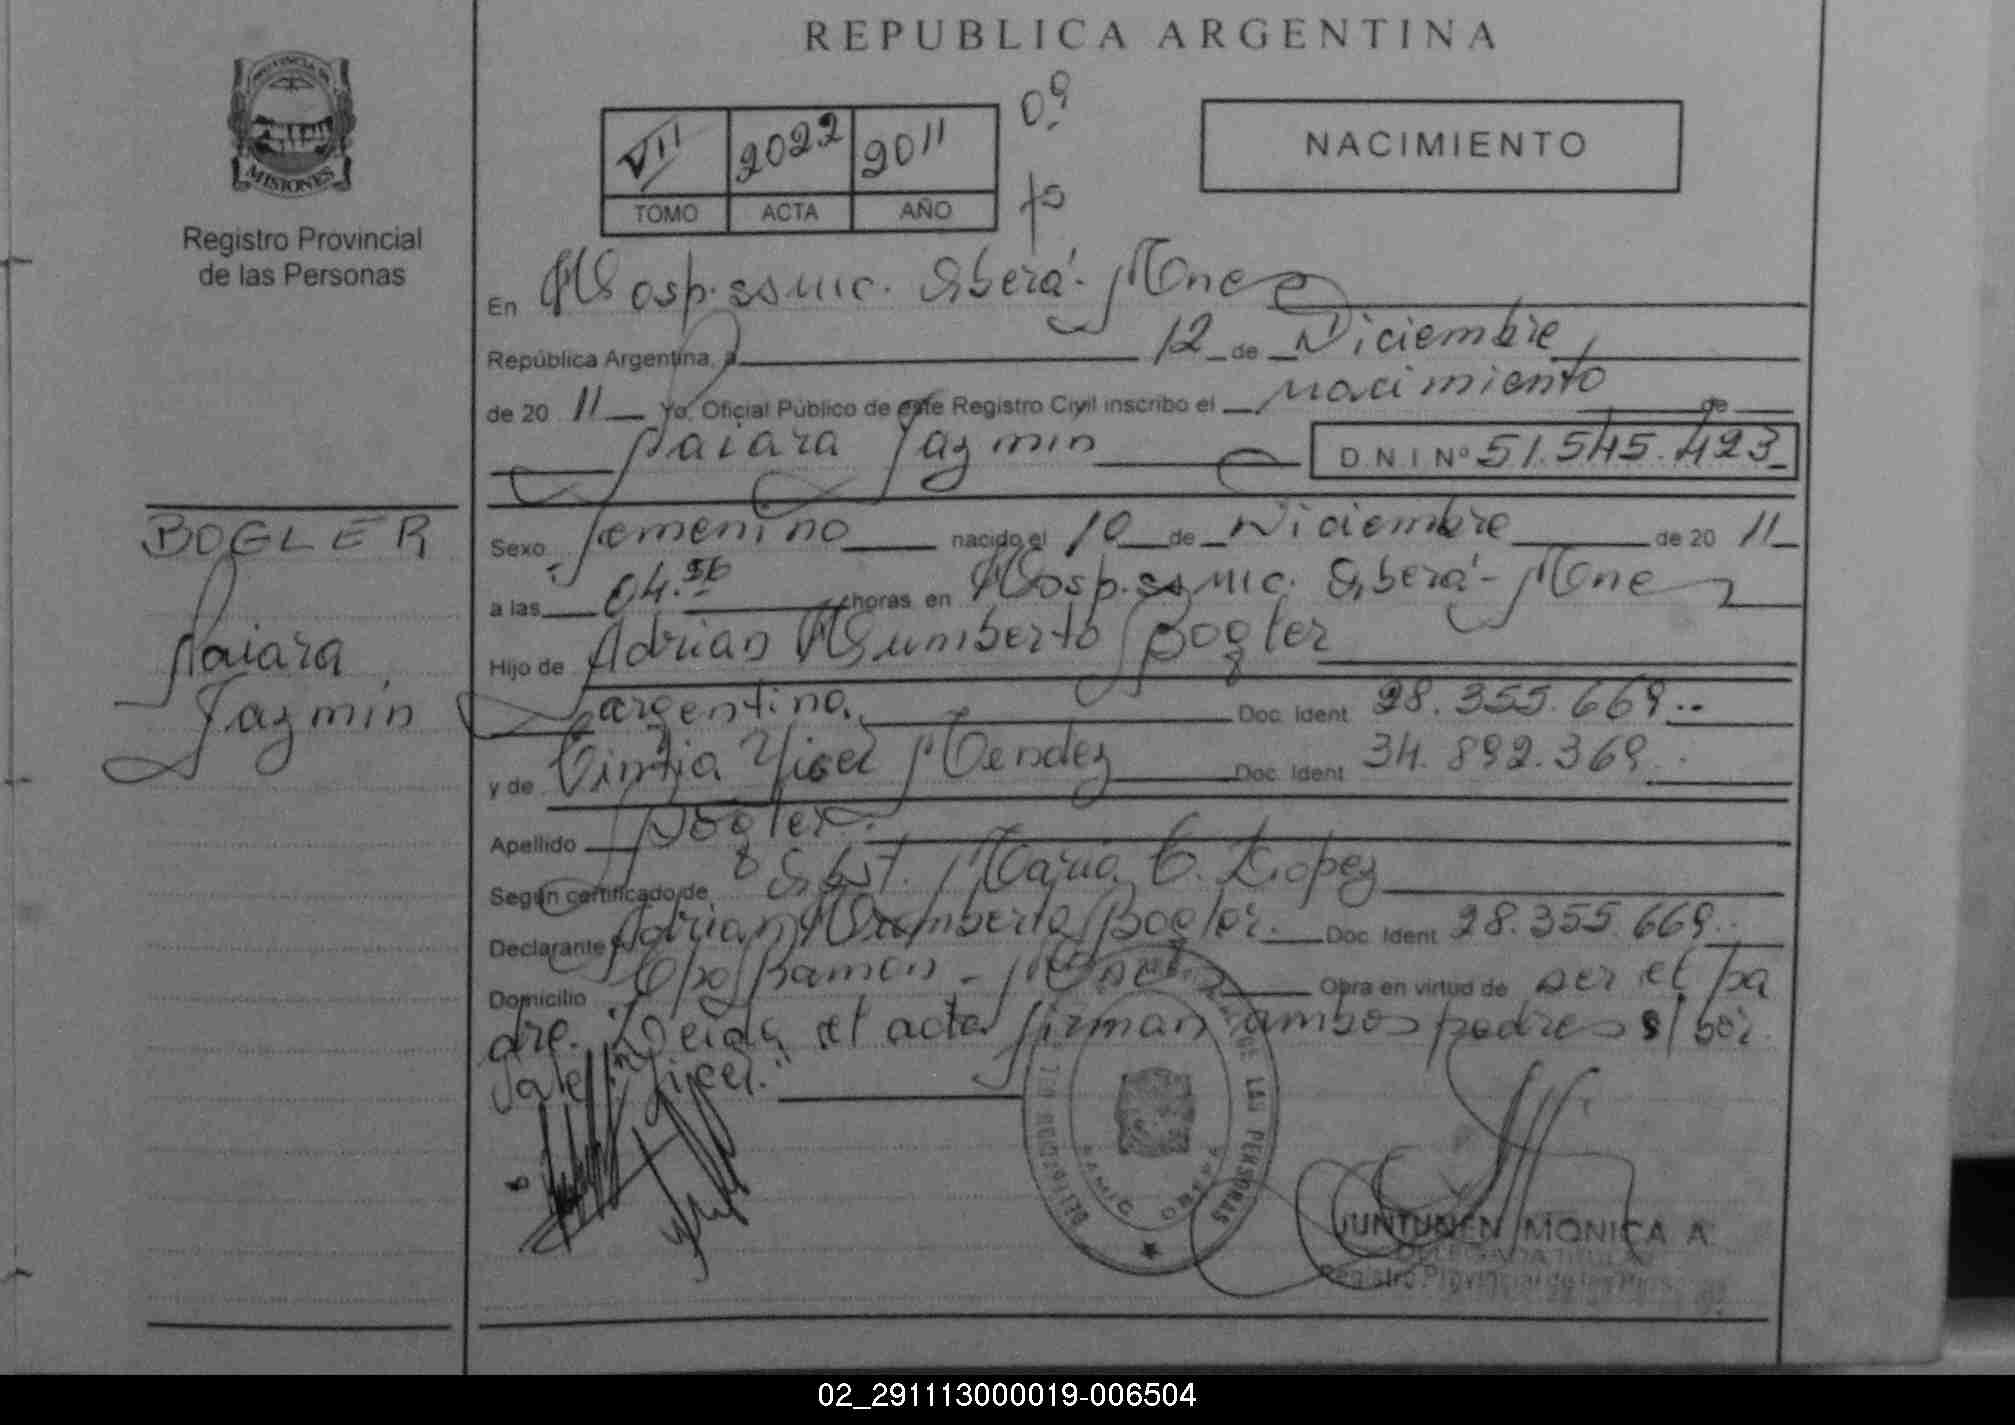 REPUBLICA ARGENTINA
PROVINCIA DE
MISIONES
Registro Provincial
de las Personas
VII 2022 2011
TOMO ACTA AÑO
NACIMIENTO
En Hosp. Oberá - Mnes
República Argentina, a 12 de Diciembre
de 20 11 Yo. Oficial Público de este Registro Civil inscribo el nacimiento de
Naiara Jazmin D.N.I Nº 51.545.423
BOGLER
Naiara
Jazmin
Sexo femenino nacido el 10 de Diciembre de 20 11
a las 04. horas en Hosp. Oberá - Mnes
Hijo de Adrian Humberto Bogler
argentina. Doc. Ident 28.355.669
y de Cintia Yisel Mendez Doc. Ident 34.892.369
Apellido Bogler.
Según certificado de Obst. Maria C. Lopez
Declarante Adrian Humberto Bogler. Doc. Ident 28.355.669
Domicilio Cpo Ramon - Obra en virtud de ser el pa
dre. Leida el acta firman ambos padres s/ bor.
Vale: "Yisel."
LAS PERSONAS
SAMIC OBERA
JUNTUNEN MONICA A.
DELEGADA TITULAR
Registro Provincial de las Personas
02_291113000019-006504